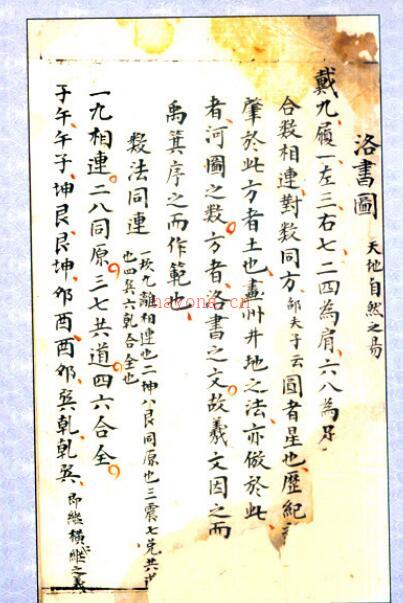 洛書圖 天地自然之易
戴九履一左三右七二四為肩六八為足
合数相連對数同方 邵夫子云 圓者星也歷紀
肇於此方者土也畫州井地之法亦倣於此
者河圖之数方者洛書之文故羲文因之而
禹箕序之而作範也
数法同連 一坎九離相連也二坤八艮同原也三震七兌共
也四巽六乾合全也
一九相連二八同原三七共道四六合全
子午午子坤艮艮坤夘酉酉夘巽乾乾巽
nayona.cn